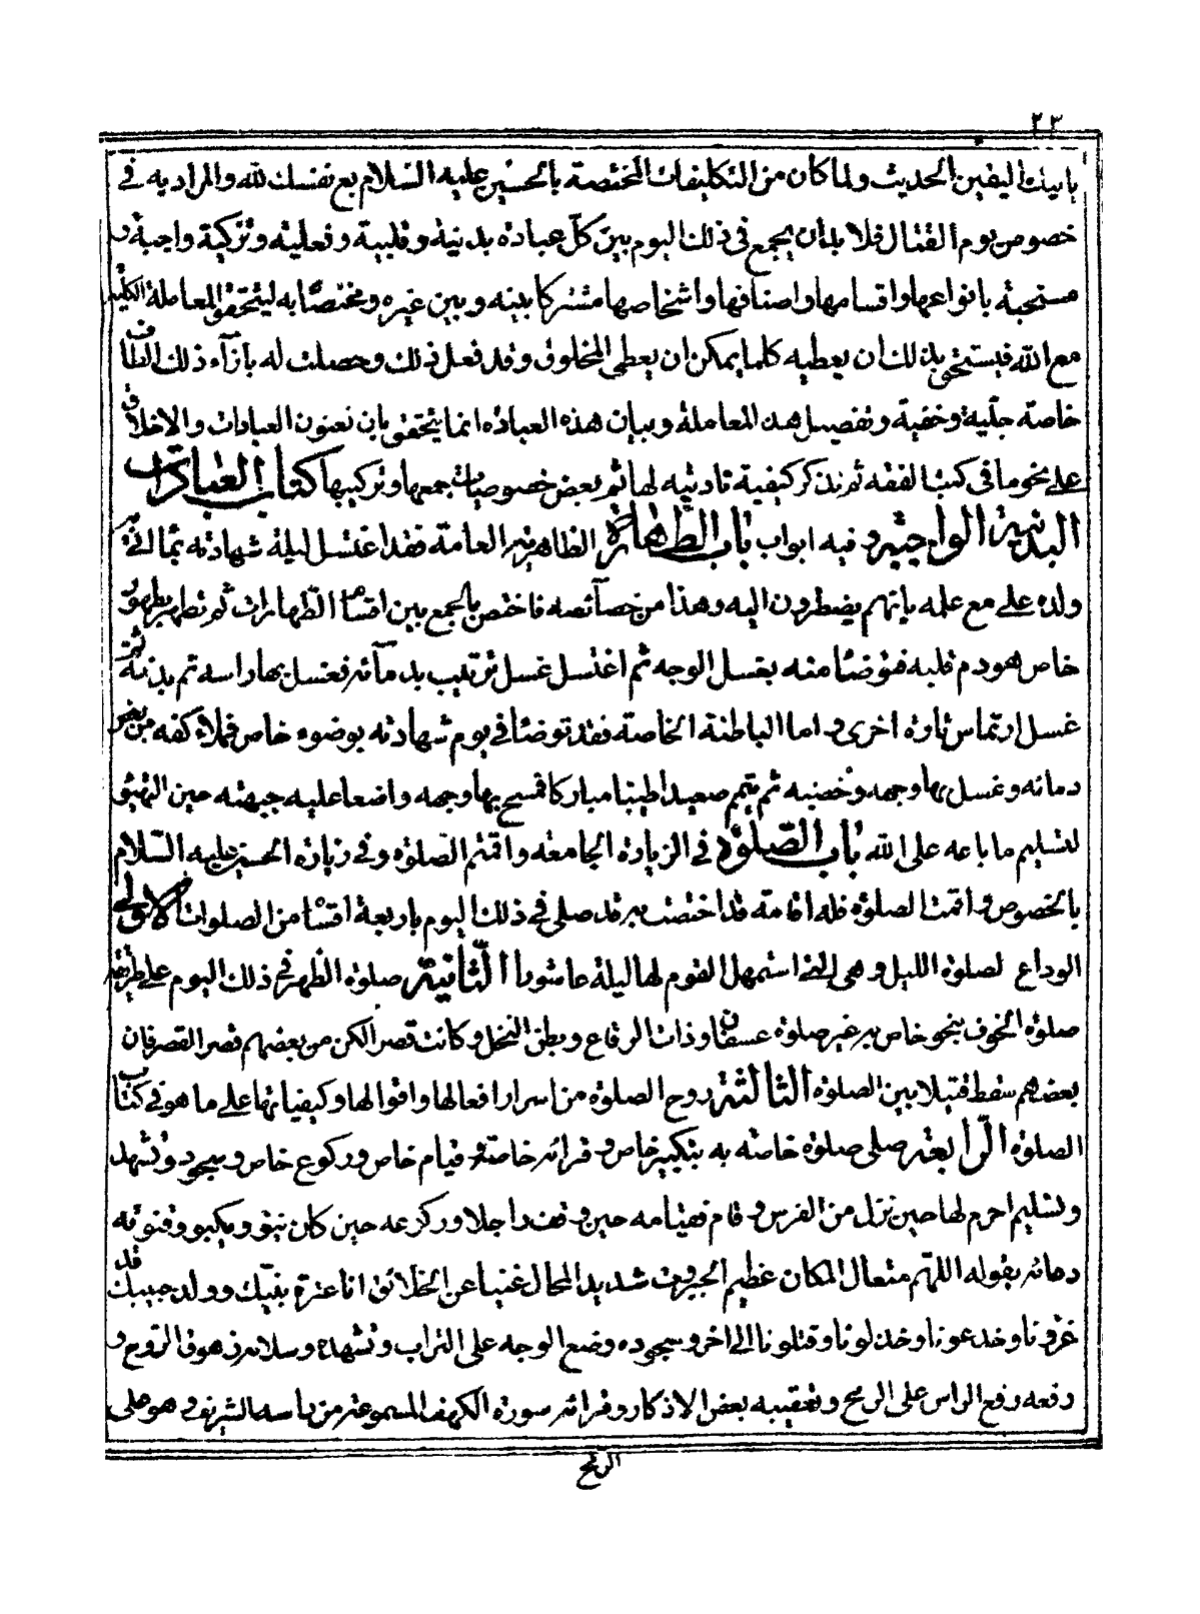 ٢٣
يأتيك اليقين الحديث ولما كان من التكليفات المختصة بالحسين عليه السلام بع نفسك لله والمراد به في
خصوص يوم القتال فلا بد أن يجمع في ذلك اليوم بين كل عبادة بدنية وقلبية وفعلية وتركية واجبة و
مستحبة بانواعها واقسامها واصنافها واشخاصها مشتركا بينه وبين غيره ومختصا به ليتحقق المعاملة الكلية
مع الله فيستحق بذلك ان يعطيه كلما يمكن ان يعطى المخلوق وقد فعل ذلك وحصلت له بازآء ذلك الطاف
خاصة جلية وخفية وتفصيل هذه المعاملة وبيان هذه العبادة انما يتحقق بان نعنون العبادات والاخلاق
على نحو ما في كتب الفقه ثم نذكر كيفية تاديته لها ثم بعض خصوصيات جمعها وتركيبها كتاب العبادات
البدنية الواجبة وفيه ابواب باب الطهارة الظاهرية العامة فقد اغتسل ليلة شهادته بماء اتى به
ولده على مع علمه بانهم يضطرون اليه وهذا من خصآئصه فاختص بالجمع بين اقسام الطهارات ثم تطهر بطهور
خاص هو دم قلبه فتوضا منه بغسل الوجه ثم اغتسل غسل ترتيب بدمآئه فغسل بها راسه ثم بدنه ثم
غسل ارتماس تارة اخرى واما الباطنة الخاصة فقد توضا في يوم شهادته بوضوء خاص فملاء كفه من بعض
دمائه وغسل بها وجهه وخضبه ثم تيمم صعيدا طيبا مباركا فمسح بها وجهه واضعا عليه جبهته حين التهيؤ
لتسليم ما باعه على الله باب الصلوة في الزيارة الجامعة واقمتم الصلوة وفي زيارة الحسين عليه السلام
بالخصوص واقمت الصلوة فله اقامة قد اختصت به قد صلى في ذلك اليوم باربعة اقسام من الصلوات الاولى
الوداع لصلوة الليل وهي التي استمهل القوم لها ليلة عاشورا الثانية صلوة الظهر في ذلك اليوم على طريقة
صلوة الخوف بنحو خاص به غير صلوة عسفان وذات الرقاع وبطن النخل وكانت قصرا لكن من بعضهم قصر القصر فان
بعضهم سقط قتيلا بين الصلوة الثالثة روح الصلوة من اسرار افعالها واقوالها وكيفياتها على ما هو في كتاب
الصلوة الرابعة صلى صلوة خاصة به بتكبير خاص وقرائة خاصة وقيام خاص وركوع خاص وسجود وتشهد
وتسليم احرم لها حين نزل من الفرس وقام قيامه حين وقف راجلا وركوعه حين كان ينوء ويكبو وقنوته
دعائه بقوله اللهم متعال المكان عظيم الجبروت شديد المحال غنيا عن الخلائق انا عترة نبيك وولد حبيبك قد
غرونا وخدعونا وخذلونا وقتلونا الى اخره وسجوده وضع الوجه على التراب وتشهده وسلامه زهوق الروح و
رفعه رفع الراس على الرمح وتعقيبه بعض الاذكار وقرائة سورة الكهف المسموعة من راسه الشريف وهو على
الرمح